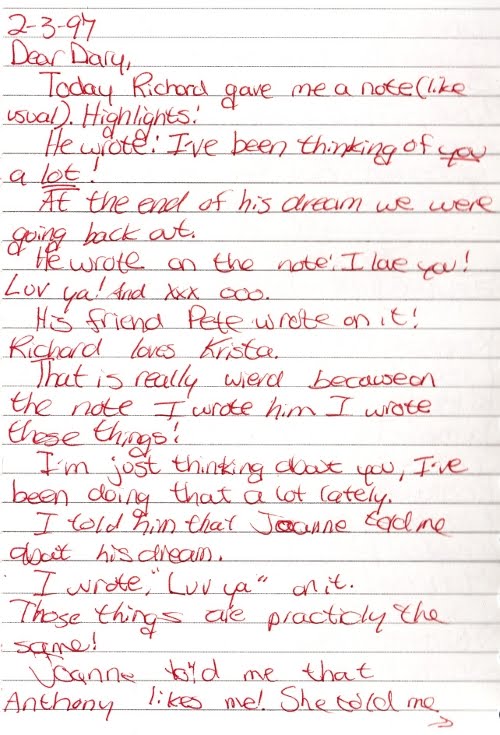 2-3-97
Dear Dary,
Today Richard gave me a note (like
usual). Highlights!
He wrote: I've been thinking of you
a lot!
At the end of his dream we were
going back out.
He wrote on the note: I love you!
Luv ya! And xxx ooo.
His friend Pete wrote on it!
Richard loves Krista.
That is really wierd because on
the note I wrote him I wrote
those things!
I'm just thinking about you, I've
been doing that a lot lately.
I told him that Joanne told me
about his dream.
I wrote, "Luv ya" on it.
Those things are practicly the
same!
Joanne told me that
Anthony likes me! She told me